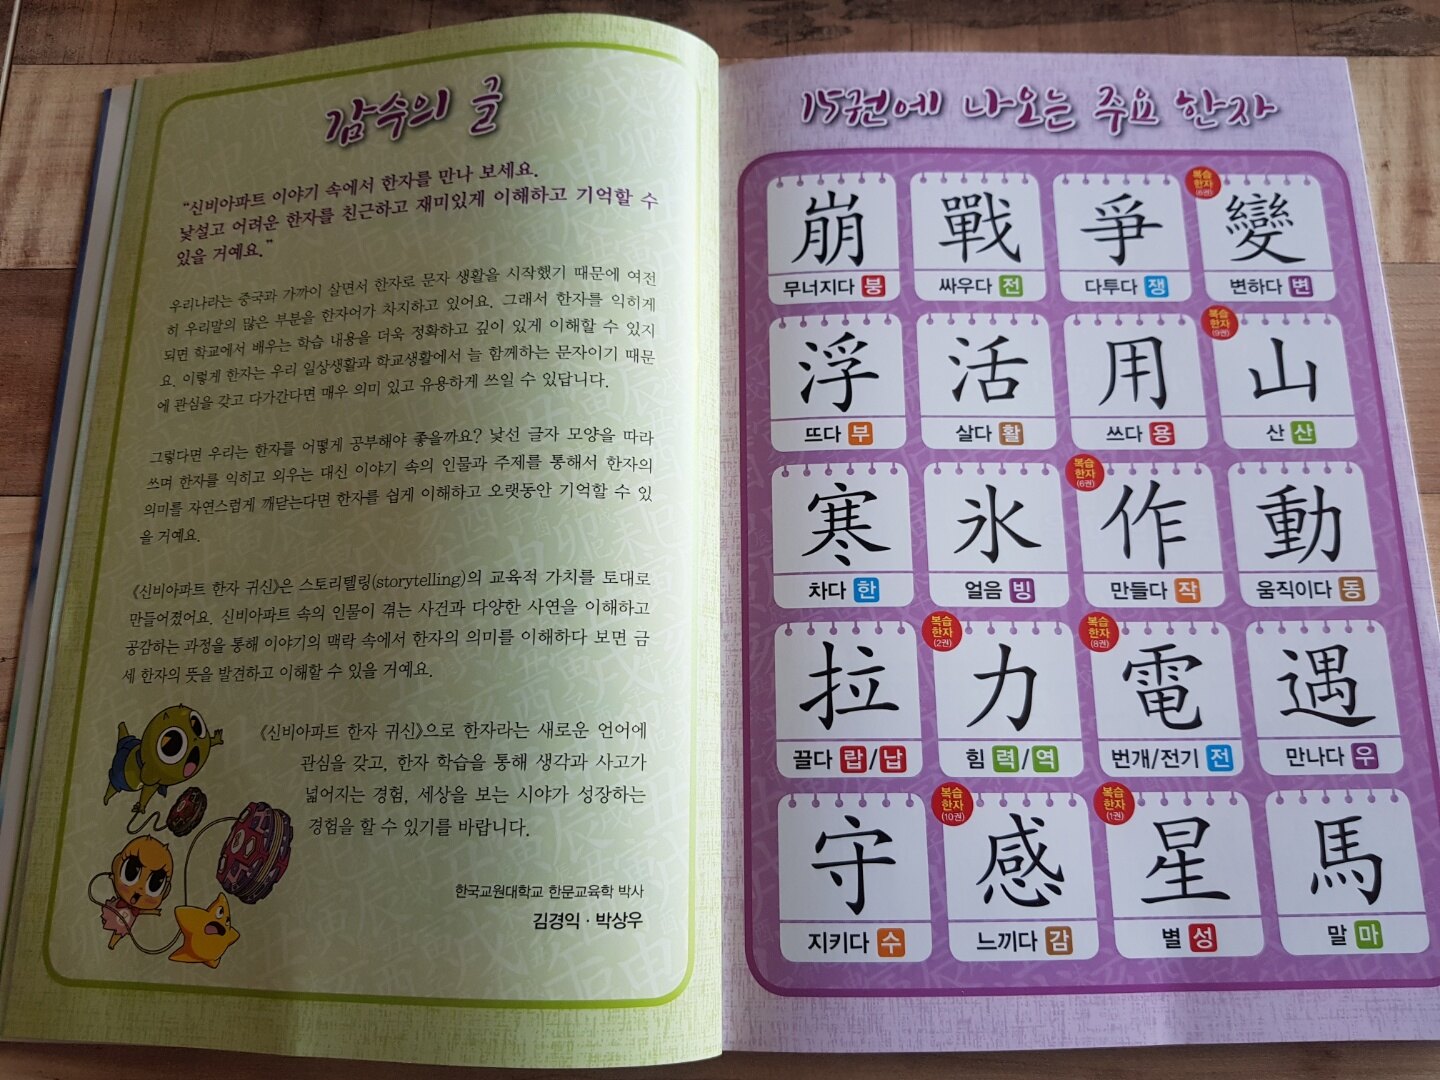 감수의 글
“신비아파트 이야기 속에서 한자를 만나 보세요.
낯설고 어려운 한자를 친근하고 재미있게 이해하고 기억할 수
있을 거예요.”
우리나라는 중국과 가까이 살면서 한자로 문자 생활을 시작했기 때문에 여전
히 우리말의 많은 부분을 한자어가 차지하고 있어요. 그래서 한자를 익히게
되면 학교에서 배우는 학습 내용을 더욱 정확하고 깊이 있게 이해할 수 있지
요. 이렇게 한자는 우리 일상생활과 학교생활에서 늘 함께하는 문자이기 때문
에 관심을 갖고 다가간다면 매우 의미 있고 유용하게 쓰일 수 있답니다.
그렇다면 우리는 한자를 어떻게 공부해야 좋을까요? 낯선 글자 모양을 따라
쓰며 한자를 익히고 외우는 대신 이야기 속의 인물과 주제를 통해서 한자의
의미를 자연스럽게 깨닫는다면 한자를 쉽게 이해하고 오랫동안 기억할 수 있
을 거예요.
《신비아파트 한자 귀신》은 스토리텔링(storytelling)의 교육적 가치를 토대로
만들어졌어요. 신비아파트 속의 인물이 겪는 사건과 다양한 사연을 이해하고
공감하는 과정을 통해 이야기의 맥락 속에서 한자의 의미를 이해하다 보면 금
세 한자의 뜻을 발견하고 이해할 수 있을 거예요.
《신비아파트 한자 귀신》으로 한자라는 새로운 언어에
관심을 갖고, 한자 학습을 통해 생각과 사고가
넓어지는 경험, 세상을 보는 시야가 성장하는
경험을 할 수 있기를 바랍니다.
한국교원대학교 한문교육학 박사
김경익 · 박상우
15권에 나오는 주요 한자
崩 戰 爭 복습 한자 (6권) 變
무너지다 붕 싸우다 전 다투다 쟁 변하다 변
浮 活 用 복습 한자 (9권) 山
뜨다 부 살다 활 쓰다 용 산 산
寒 氷 복습 한자 (6권) 作 動
차다 한 얼음 빙 만들다 작 움직이다 동
拉 복습 한자 (2권) 力 복습 한자 (8권) 電 遇
끌다 랍/납 힘 력/역 번개/전기 전 만나다 우
守 복습 한자 (10권) 感 복습 한자 (1권) 星 馬
지키다 수 느끼다 감 별 성 말 마